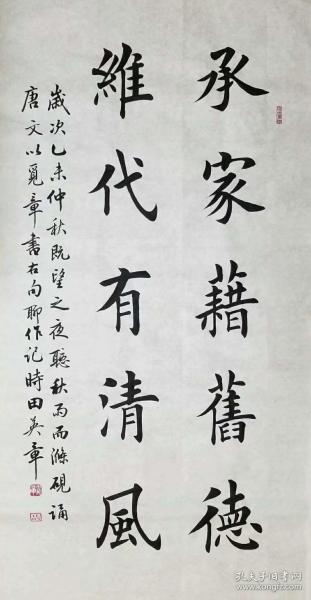 承家藉舊德
維代有清風
歲次乙未仲秋既望之夜聽秋雨而滌硯誦
唐文以覓章書右句聊作記時田英章
孔夫子旧书网